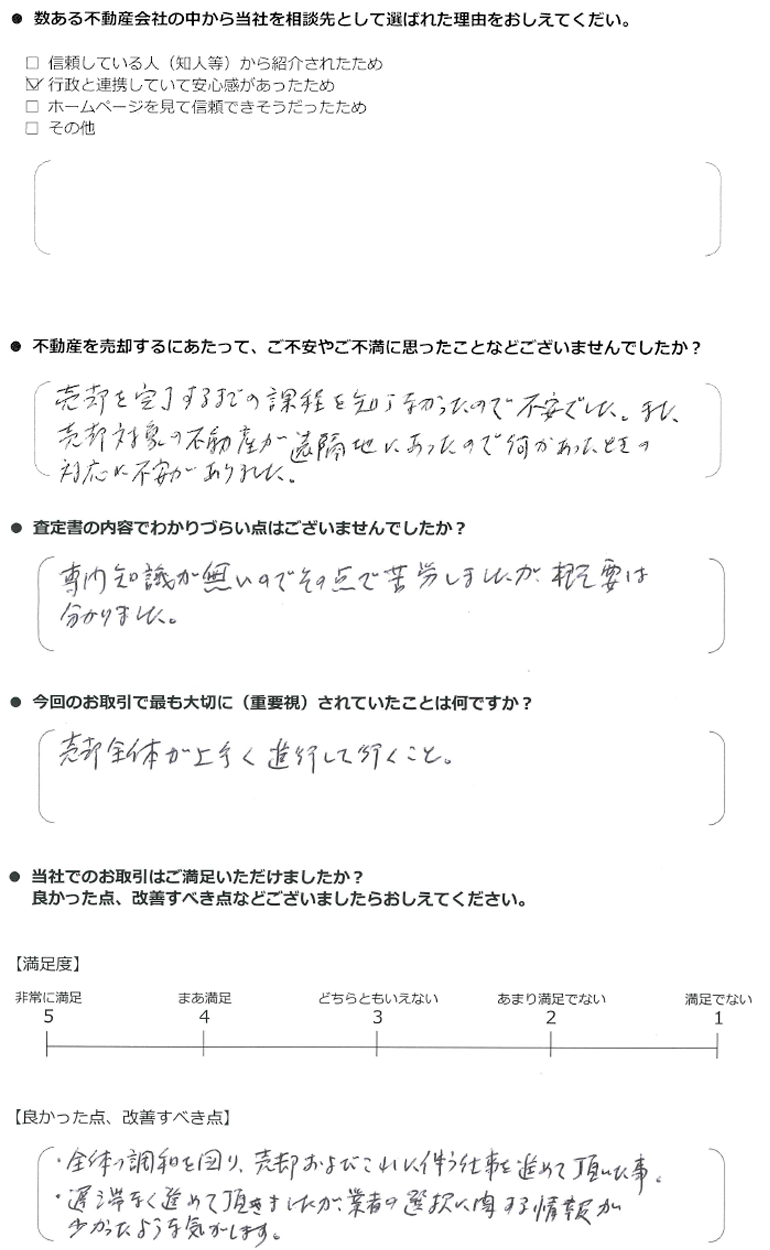 ● 数ある不動産会社の中から当社を相談先として選ばれた理由をおしえてくだい。
□ 信頼している人（知人等）から紹介されたため
☑ 行政と連携していて安心感があったため
□ ホームページを見て信頼できそうだったため
□ その他
● 不動産を売却するにあたって、ご不安やご不満に思ったことなどございませんでしたか？
売却を完了するまでの課程を知らなかったので不安でした。また、
売却対象の不動産が遠隔地にあったので何かあったときの
対応に不安がありました。
● 査定書の内容でわかりづらい点はございませんでしたか？
専門知識が無いのでその点で苦労しましたが、概要は
分かりました。
● 今回のお取引で最も大切に（重要視）されていたことは何ですか？
売却全体が上手く進行して行くこと。
● 当社でのお取引はご満足いただけましたか？
良かった点、改善すべき点などございましたらおしえてください。
【満足度】
非常に満足 まあ満足 どちらともいえない あまり満足でない 満足でない
5 4 3 2 1
【良かった点、改善すべき点】
・全体の調和を図り、売却およびこれに伴う仕事を進めて頂いた事。
・遅滞なく進めて頂きましたが、業者の選択に関する情報が
少かったような気がします。